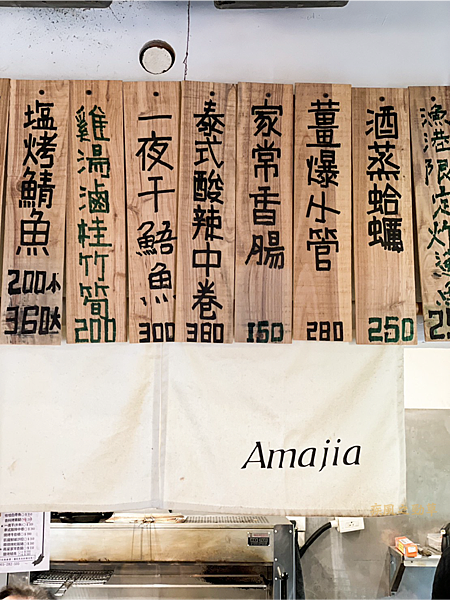 塩烤鯖魚
200小
360大
雞湯滷桂竹筍
200
一夜干鯃魚
300
泰式酸辣中卷
380
家常香腸
150
薑爆小管
280
酒蒸蛤蠣
250
漁港限定炸漁魚
Amajia